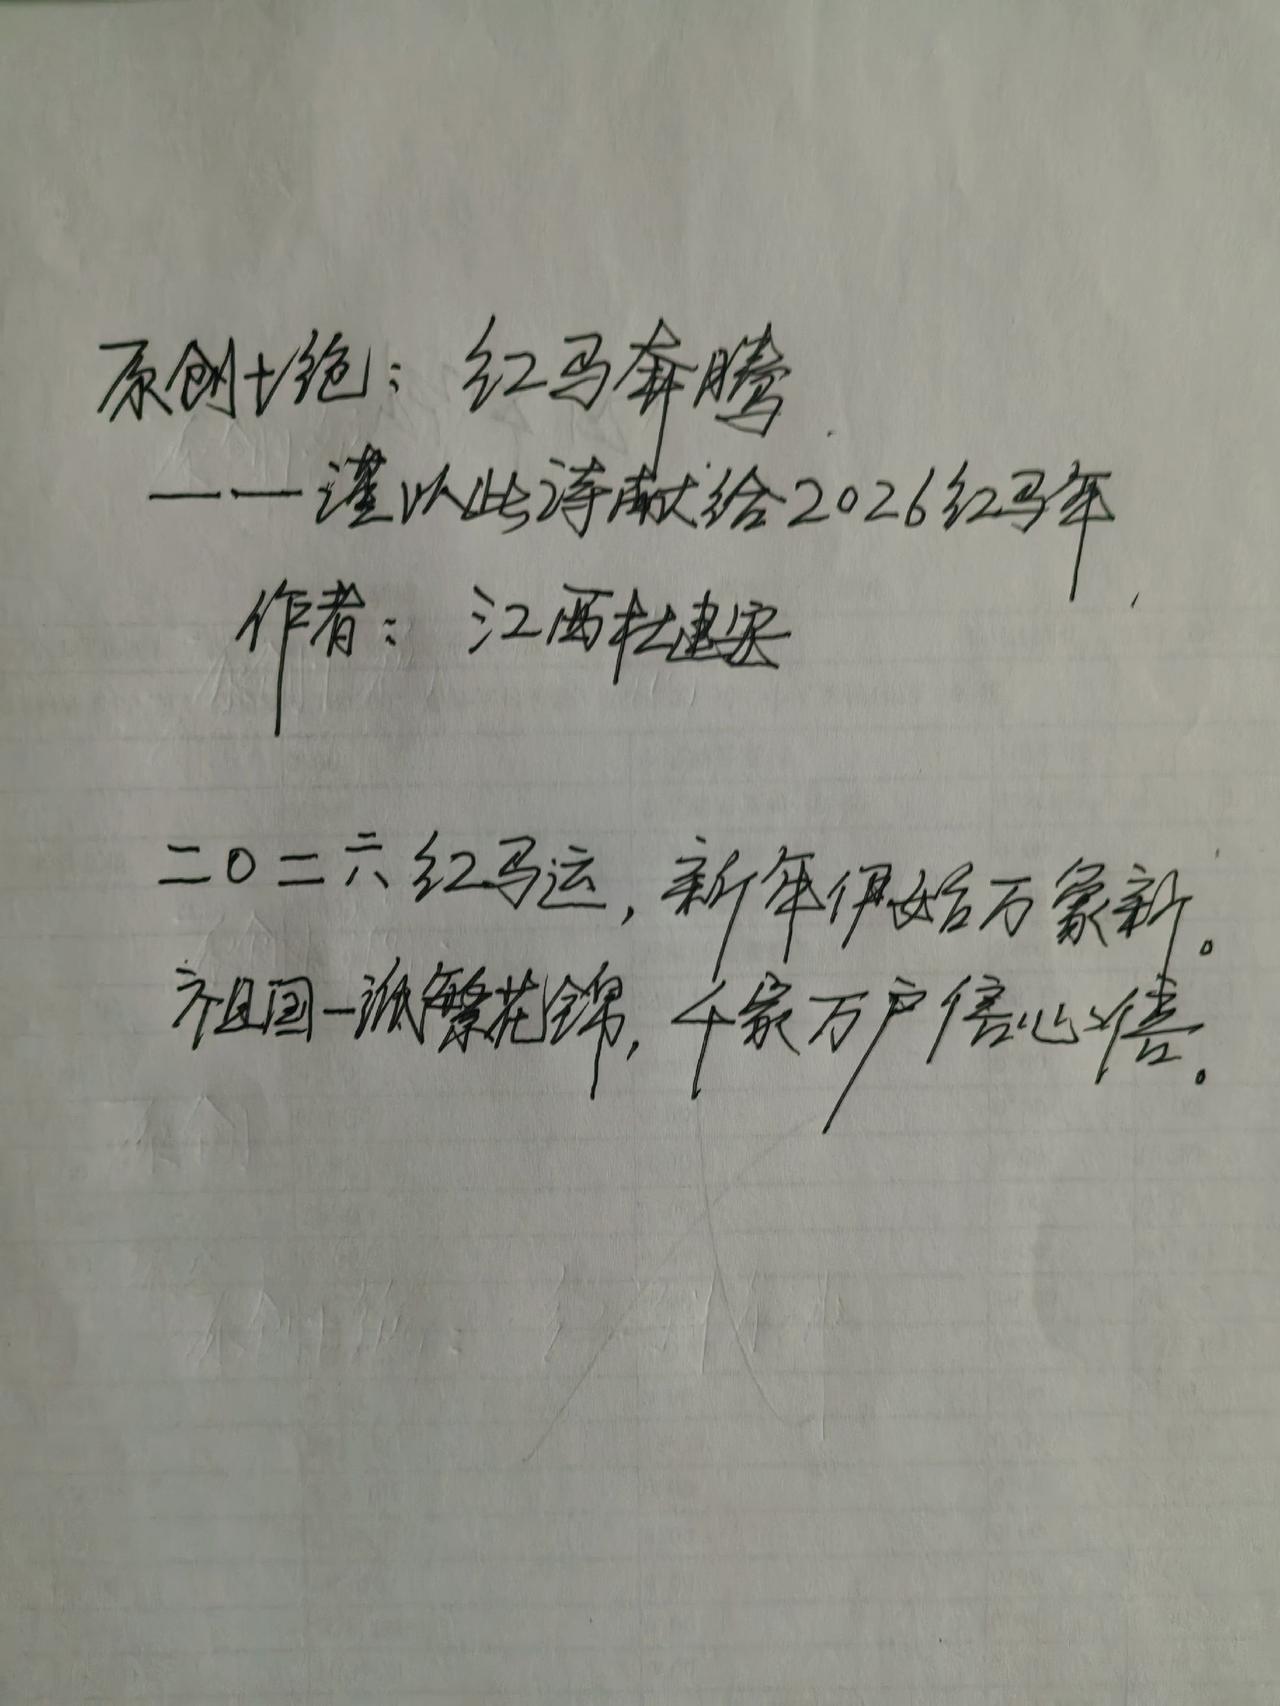 原创七绝：红马奔腾
——谨以此诗献给2026红马年
作者：江西杜建安
二〇二六红马运，新年伊始万象新。
祖国一派繁花锦，千家万户信心倍。